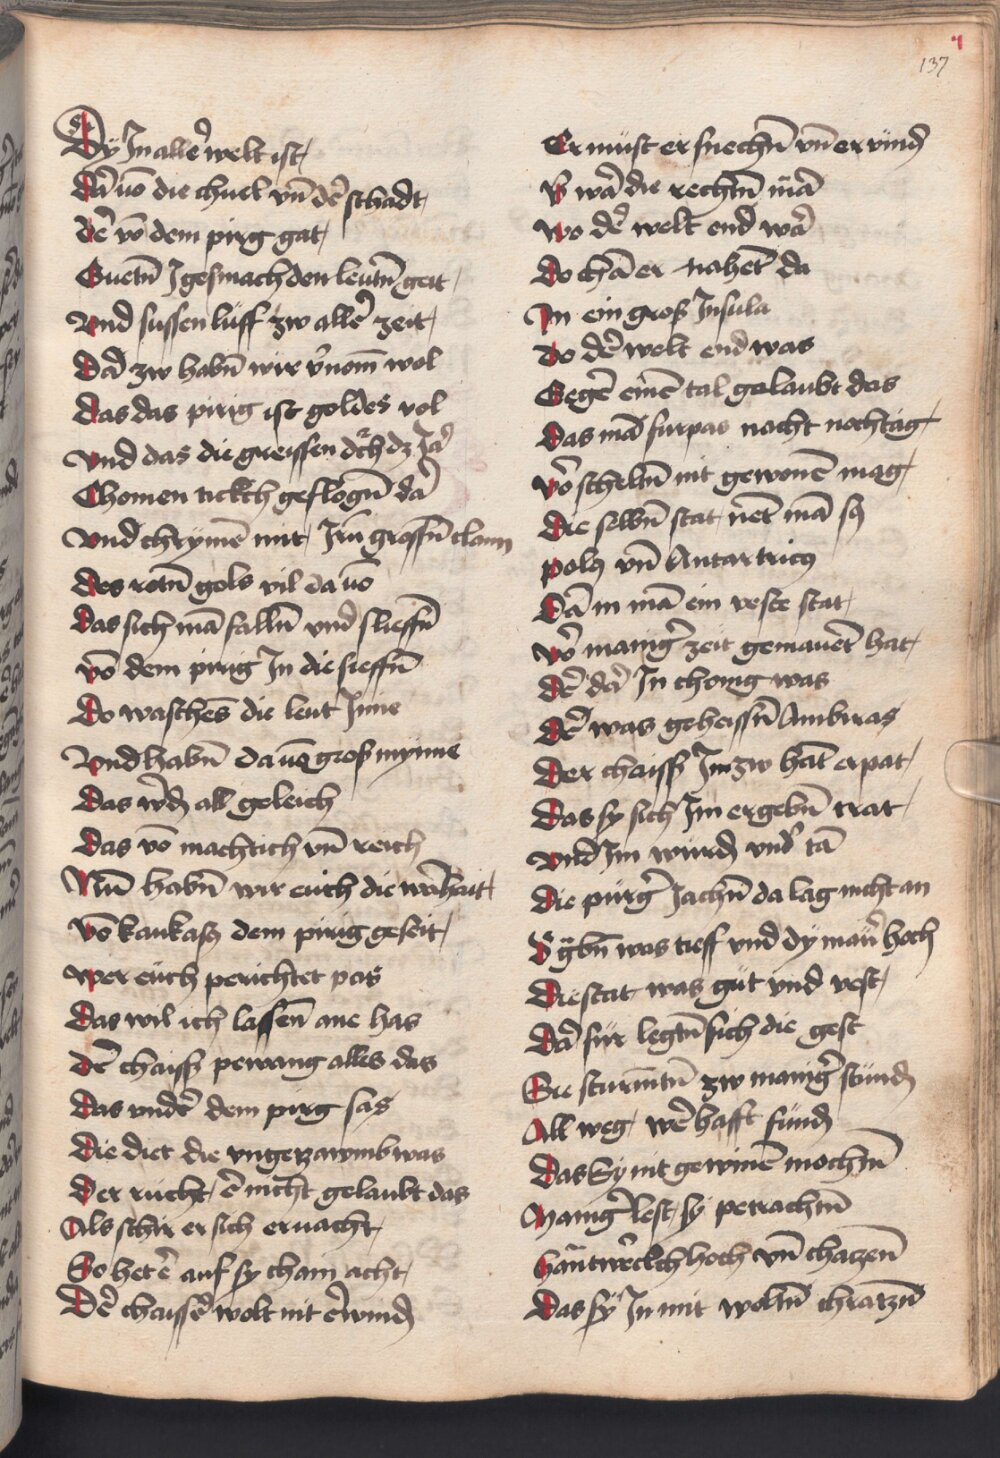 137
Dy In aller̄ welt ist/
Da vō die chuel vn̄ der̄ schadt/
Der̄ vō dem pirg gat/
Guetn̄ Igesmach den leutn̄ geit/
Vnd sussen lufft zw aller̄ zeit/
Dar̄ zw habn̄ wir v̄nom̄ wol
Das das pirig ist goldes vol
Vnd das die greiffen dc̄h dz Ja᷑
Chomen dickch geflogn̄ da᷑
Vnd chrymē mit Irn̄ grossn̄ clann
Des rotn̄ gols vil da vō
Das sich mā falln̄ vnd sliessn̄
Vō dem pirig In die sieffn̄
Do waschēs die leut Inne
Vnd habn̄ da vō gross mynne
Das wr̄dn all geleich
Das vō machtich vn̄ reich
Nun̄ habn̄ wir euch die wa᷑hait/
Vō kaukasꝫ dem pirig geseit/
Wer euch perichtet pas
Das wil ich lassen̄ ane has
Der̄ chaisꝫ pewang alles das
Das vnder̄ dem pirg sas
Die diet die vngezawmb was
Der rucht er̄ nicht gelaubt das
Als schir er sich ervacht/
So het er̄ auf sy chain acht/
Der̄ chaisser̄ wolt nit er̄windn
Er müst er suechn̄ vn̄ ervindn
V̄ wa᷑ die rechtn̄ mā᷑
Wo der̄ welt end wa᷑
Do chā er nahet̄ da
In ein gross Insula
Do der̄ welt end was
Gegē einē tal gelaubt das
Das mā furpas nacht noch tag/
Vo᷑ scheln̄ nit gewonē mag/
Die selbn̄ stat nēt mā sꝫ
Polꝫ vn̄ Antartricꝫ
Da᷑ in mā ein veste stat/
Vo᷑ manig᷑ zeit gemauert hat/
Der̄ da᷑ In chonig was
Der̄ was geheissn̄ Ambiras
Der chaisꝫ Im zw hāt erpat/
Das sy sich Im ergebn̄ trat/
Vnd Im wurdn vnd᷑ tā
Die purg᷑ Jachn̄ da lag nicht an
D᷑ g᷑bn̄ was tieff vnd dy mau᷑ hoch
Die stat was gut vnd vest/
Da᷑ fur legtn̄ sich die gest
Sie sturmtn̄ zw manig᷑ stundn
All weg we᷑hafft fundn
Das Sy nit gewinē mochtn̄
Manig᷑ lest sy petrachtn̄
hantwer̄ckch hoch vn̄ chazen̄
Das sy In mit woltn̄ chratzn̄